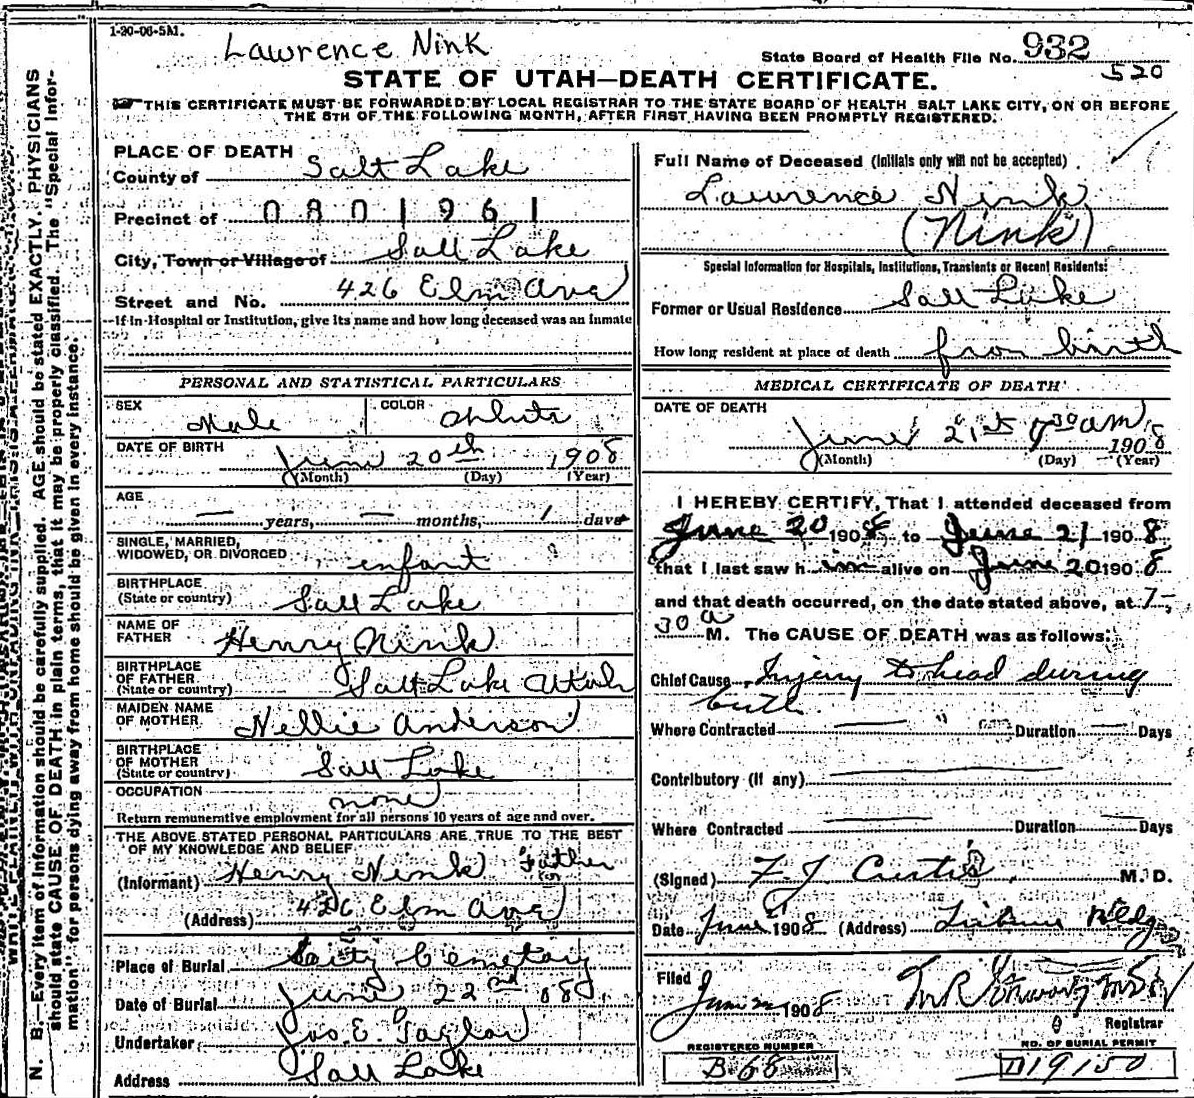 1-20-06-5M.
Lawrence Nink
State Board of Health File No. 932
520
STATE OF UTAH—DEATH CERTIFICATE.
THIS CERTIFICATE MUST BE FORWARDED BY LOCAL REGISTRAR TO THE STATE BOARD OF HEALTH SALT LAKE CITY, ON OR BEFORE
THE 5TH OF THE FOLLOWING MONTH, AFTER FIRST HAVING BEEN PROMPTLY REGISTERED.
N. B.—Every item of information should be carefully supplied. AGE should be stated EXACTLY. PHYSICIANS
should state CAUSE OF DEATH in plain terms, that it may be properly classified. The "Special Infor-
mation" for persons dying away from home should be given in every instance.
PLACE OF DEATH
County of Salt Lake
Precinct of 0801961
City, Town or Village of Salt Lake
Street and No. 426 Elm Ave
If in Hospital or Institution, give its name and how long deceased was an inmate
PERSONAL AND STATISTICAL PARTICULARS
SEX Male COLOR White
DATE OF BIRTH June 20th 1908
(Month) (Day) (Year)
AGE — years, — months, 1 days
SINGLE, MARRIED,
WIDOWED, OR DIVORCED infant
BIRTHPLACE
(State or country) Salt Lake
NAME OF
FATHER Henry Nink
BIRTHPLACE
OF FATHER
(State or country) Salt Lake Utah
MAIDEN NAME
OF MOTHER Nellie Anderson
BIRTHPLACE
OF MOTHER
(State or country) Salt Lake
OCCUPATION none
Return remunerative employment for all persons 10 years of age and over.
THE ABOVE STATED PERSONAL PARTICULARS ARE TRUE TO THE BEST
OF MY KNOWLEDGE AND BELIEF.
(Informant) Henry Nink Father
(Address) 426 Elm Ave
Place of Burial City Cemetary
Date of Burial June 22nd 08
Undertaker Jos. E. Taylor
Address Salt Lake
Full Name of Deceased (Initials only will not be accepted)
Lawrence Nink
(Nink)
Special Information for Hospitals, Institutions, Transients or Recent Residents:
Former or Usual Residence Salt Lake
How long resident at place of death from birth
MEDICAL CERTIFICATE OF DEATH
DATE OF DEATH
June 21st 7 30 am 1908
(Month) (Day) (Year)
I HEREBY CERTIFY, That I attended deceased from
June 20 1908 to June 21 1908
that I last saw him alive on June 20 1908
and that death occurred, on the date stated above, at 7-
30 a M. The CAUSE OF DEATH was as follows:
Chief Cause Injery to head during
birth
Where Contracted — " Duration — Days
Contributory (if any)
Where Contracted Duration Days
(Signed) F J Curtis M. D.
Date June 1908 (Address) Bldg
Filed June 1908
Registrar
REGISTERED NUMBER
B 68
NO. OF BURIAL PERMIT
D19150